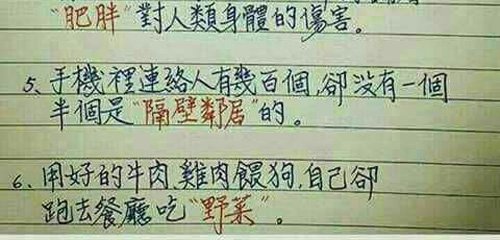 "肥胖"對人類身體的傷害。
5、手機裡連絡人有幾百個,卻没有一個
半個是"隔壁鄰居"的。
6、用好的牛肉,雞肉餵狗,自己卻
跑去餐廳吃"野菜"。